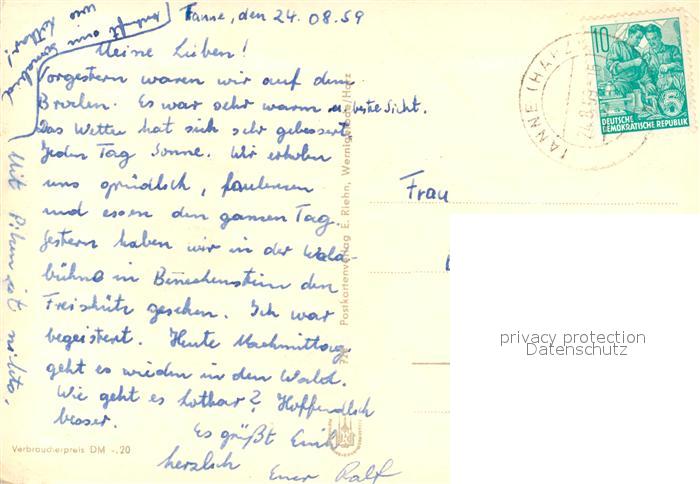 Tanne, den 24.08.59
Meine Lieben!
Vorgestern waren wir auf dem
Brocken. Es war sehr warm u. beste Sicht.
Das Wetter hat sich sehr gebessert,
Jeden Tag Sonne. Wir erholen
uns gründlich, faulenzen
und essen den ganzen Tag.
Gestern haben wir in der Wald-
bühne in Beneckenstein den
Freischütz gesehen. Ich war
begeistert. Heute Nachmittag
geht es wieder in den Wald.
Wie geht es Lothar? Hoffendlich
besser.
Es grüßt Euch
herzlich
Euer Ralf
Mit Pilzen ist nichts,
wo Lothar!
Frau
10
5
DEUTSCHE
DEMOKRATISCHE REPUBLIK
TANNE (HARZ)
Postkartenverlag E. Riehn, Wernigerode/Harz
Verbraucherpreis DM -.20
privacy protection
Datenschutz